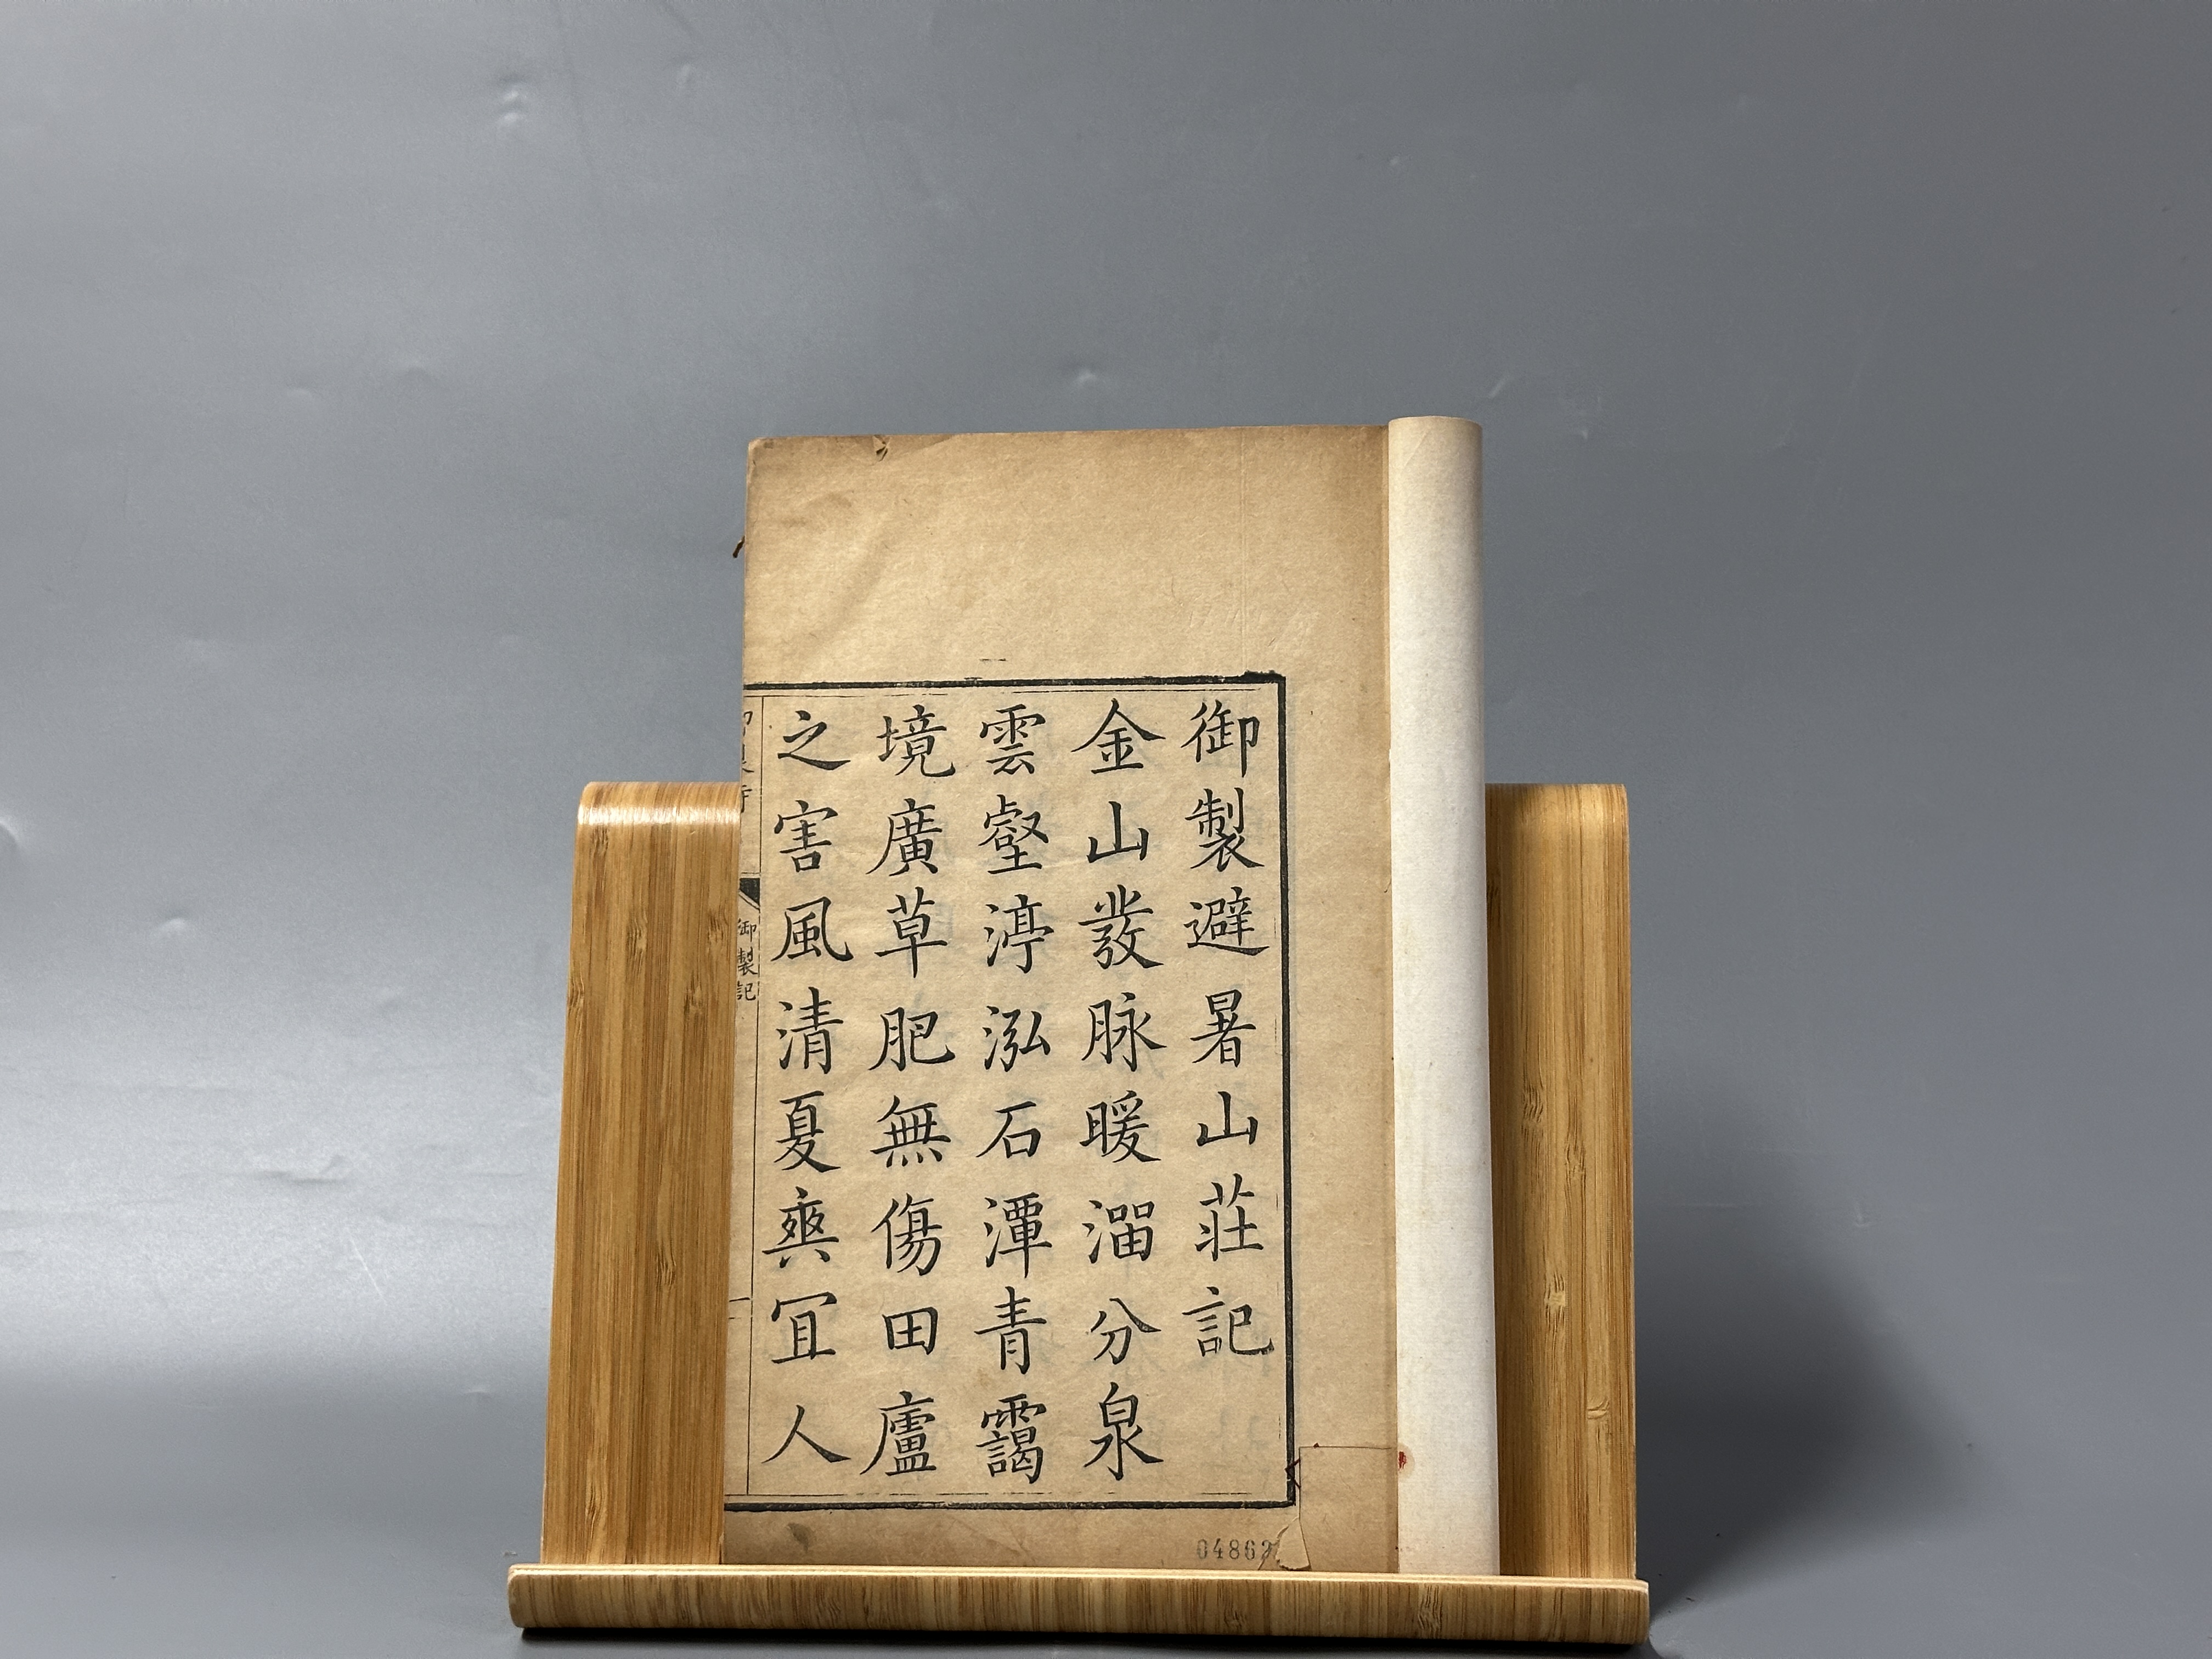 御製避暑山莊記
金山發脉暖溜分泉
雲壑渟泓石潭青靄
境廣草肥無傷田廬
之害風清夏爽宜人
御製記
一